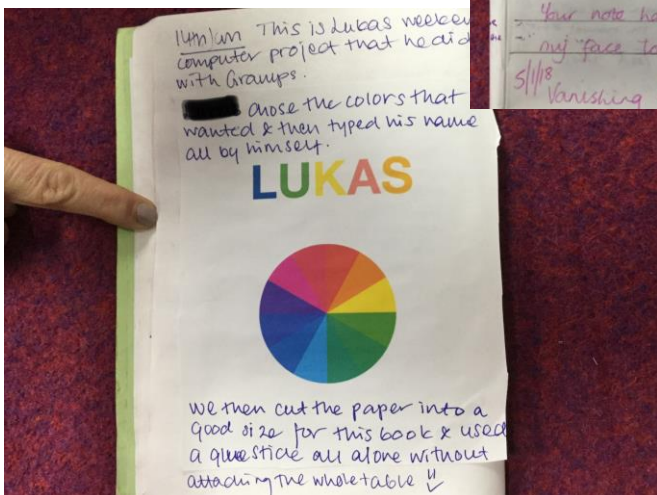 14th/Jan This is Lukas weeken
computer project that he did
with Gramps.
chose the colors that
wanted & then typed his name
all by himself.
LUKAS
we then cut the paper into a
good size for this book & used
a glue stick all alone without
attaching the whole table !!
Your note ha
my face to
5/1/18
Vanishing